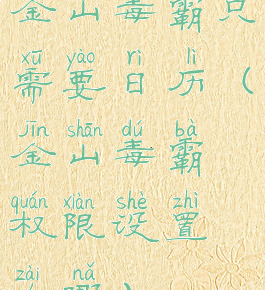 金山毒霸只
xū yào rì lì
需要日历(
jīn shān dú bà
金山毒霸
quán xiàn shè zhì
权限设置
zài nǎ
哪)